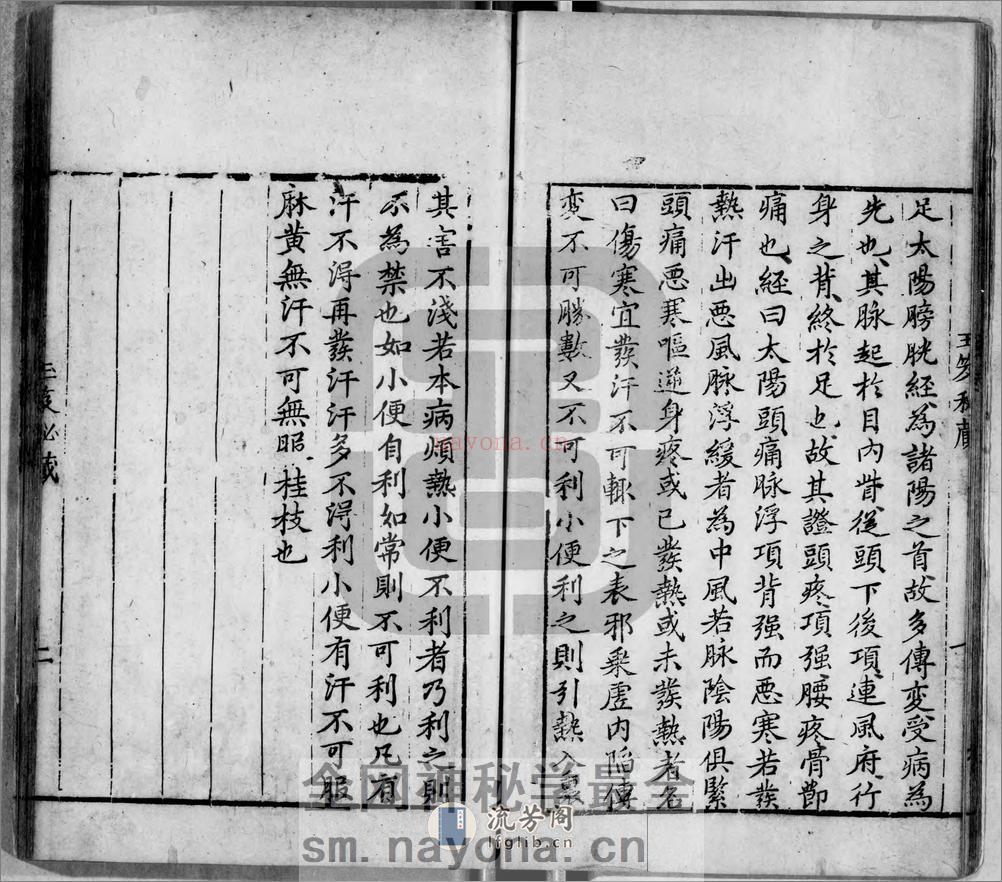 足太陽膀胱經為諸陽之首故多傳變受病為
先也其脉起於目內眥從頭下後項連風府行
身之背終於足也故其證頭疼項强腰疼骨節
痛也經曰太陽頭痛脉浮項背强而惡寒若發
熱汗出惡風脉浮緩者為中風若脉陰陽俱緊
頭痛惡寒嘔逆身疼或已發熱或未發熱者名
曰傷寒宜發汗不可輙下之表邪乗虛內陷傳
變不可勝數又不可利小便利之則引熱入裏
一
其害不淺若本病煩熱小便不利者乃利之則
不為禁也如小便自利如常則不可利也凡有
汗不得再發汗汗多不得利小便有汗不可服
麻黄無汗不可無服桂枝也
二
nayona.cn
全网神秘学最全
流芳阁
lfglib.cn
sm.nayona.cn